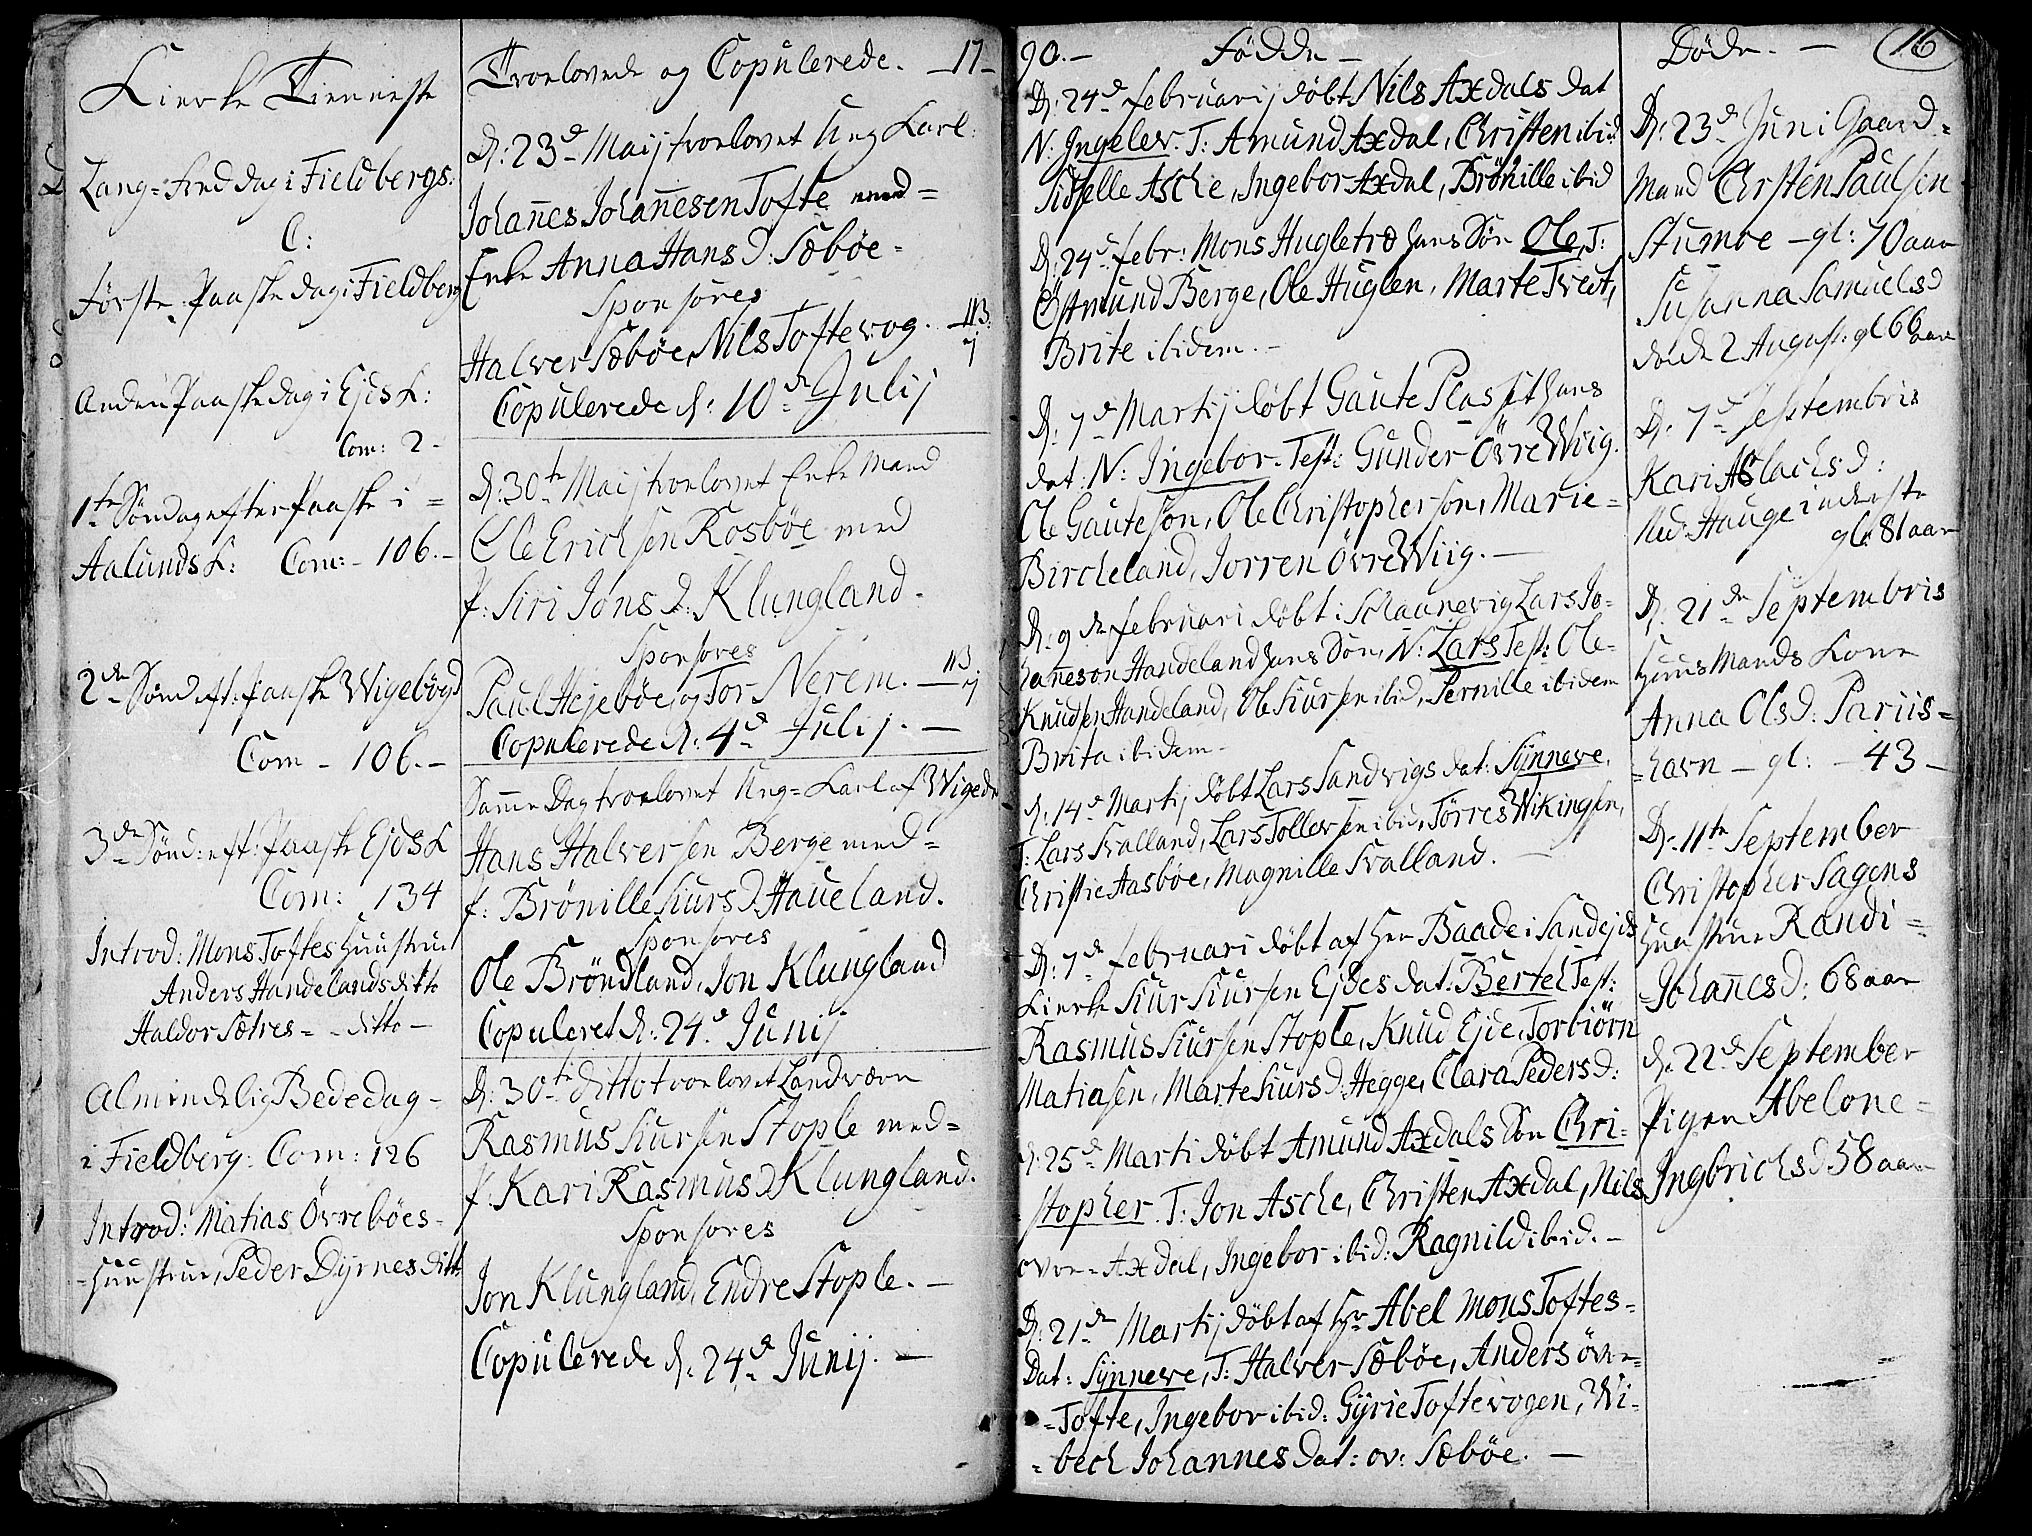 Kierke Tienneste
Lang-fredag i Fieldbergs:
C:
Første Paaske dag i Fieldberg
Anden Paaske dag i Ejds K:
Com: 2-
1te Søndag efter Paaske i =
Aalunds K: Com: - 106.-
2den Sønd: eft: Paaske Wigebögd
Com - 106.-
3de Sønd: eft: Paaske Ejds K
Com: 134
Introd: Mons Toftes Huustrue
Anders Handelands ditto
Haldor Sætres = - ditto -
Almindelig Bededag -
i Fieldberg: Com: 126
Introd: Matias Övreböes-
Huustrue, Peder Dyrnes ditto
Trovlovede og Copulerede. - 17-
D: 23de Maij trovlovet Ung Karl
Johannes Johannesen Tofte med =
Enke Anna Hans D: Sæböe -
Sponsores
Halver Sæböe, Nils Toftevog.
Copulerede d: 10de Julij
D: 30te Maij trovlovet Enke Mand
Ole Erichsen Rosböe med
p: Siri Jons D: Klungland.
Sponsores
Paul Hejeböe, og Tor Nerem. -
Copulerede d: 4de Julij. -
Samme Dag trovlovet Ung = Karl af Wigeda
Hans Halversen Berge med =
p: Brönille Siurs D: Haueland.
Sponsores
Ole Bröndland, Jon Klungland
Copuleret d: 24de Junij
D: 30te ditto trovlovet Landværn
Rasmus Siursen Stople med =
p. Kari Rasmus D Klungland.
Sponsores
Jon Klungland, Endre Stople. -
Copulerede d: 24de Junij. -
90.- Födde -
D: 24de februarij döbt Nils Axdals dat
N: Ingelev. T: Amund Axdal, Christen ibid:
Sidselle Asche, Ingebor Axdal, Brönille ibid
D: 24de febr: Mons Hugletræ hans Sön Ole, T:
Östmund Berge, Ole Huglen, Marte Tvedt,
Brite ibidem. -
D: 7de Martij döbt Gaute Plassit hans
dat: N: Ingebor. Test: Gunder Övre Wiig.
Ole Gauteson, Ole Christopherson, Marie =
Bircheland, Jorren Övre Wiig. -
D: 9de februari döbt i Schaanevig Lars Jo-
hanneson Handeland hans Sön, N: Lars Test: Ole -
Knudsen Handeland, Ole Siursen ibid, Pernille ibidem
Brita ibidem -
D: 14de Martij döbt Lars Sandvigs dat: Synneve,
T: Lars Svalland, Lars Tollevsen ibid, Törres Wikingsen,
Christie Aasböe, Magnille Svalland. -
D: 7de februari döbt af Her Baade i Sandejds
Kierke Siur Siursen Ejdes dat: Bertel Test:
Rasmus Siursen Stople, Knud Ejde, Torbiörn
Matiasen, Marte Siurs D: Hegge, Clara Peders d:
D: 25de Marti döbt Amund Axdals Sön Chri-
stopher. T: Jon Asche, Christen Axdal, Nils
ovre = Axdal, Ingebor ibid: Ragnild ibid. -
D: 21de Martij döbt af Hr Abel Mons Toftes =
Dat: Synneve, T: Halver Sæböe, Anders över =
= Tofte, Ingebor ibid: Gyrie Toftevogen, Wi-
= bech Johannes Dat: ov: Sæböe. -
Döde. - 16
D: 23de Juni Gaard =
Mand Chrsten Paulsen
Stumoe - gl: 70 aar
Susanna Samuels d
döde 2 August: gl 66 aar
D: 7de Septembris
Kari Aslachs d:
Hauge inderste
gl: 81 aar
D: 21de Septembris
Huus Mands Kone
Anna Ols D: Pariis =
= havn - gl: - 43 -
D: 11te September
Christopher Sagens
Huustrue Randi =
= Johannes d: 68 aar
D: 22de September
Pigen Abelone =
Ingbrichs d 58 aar